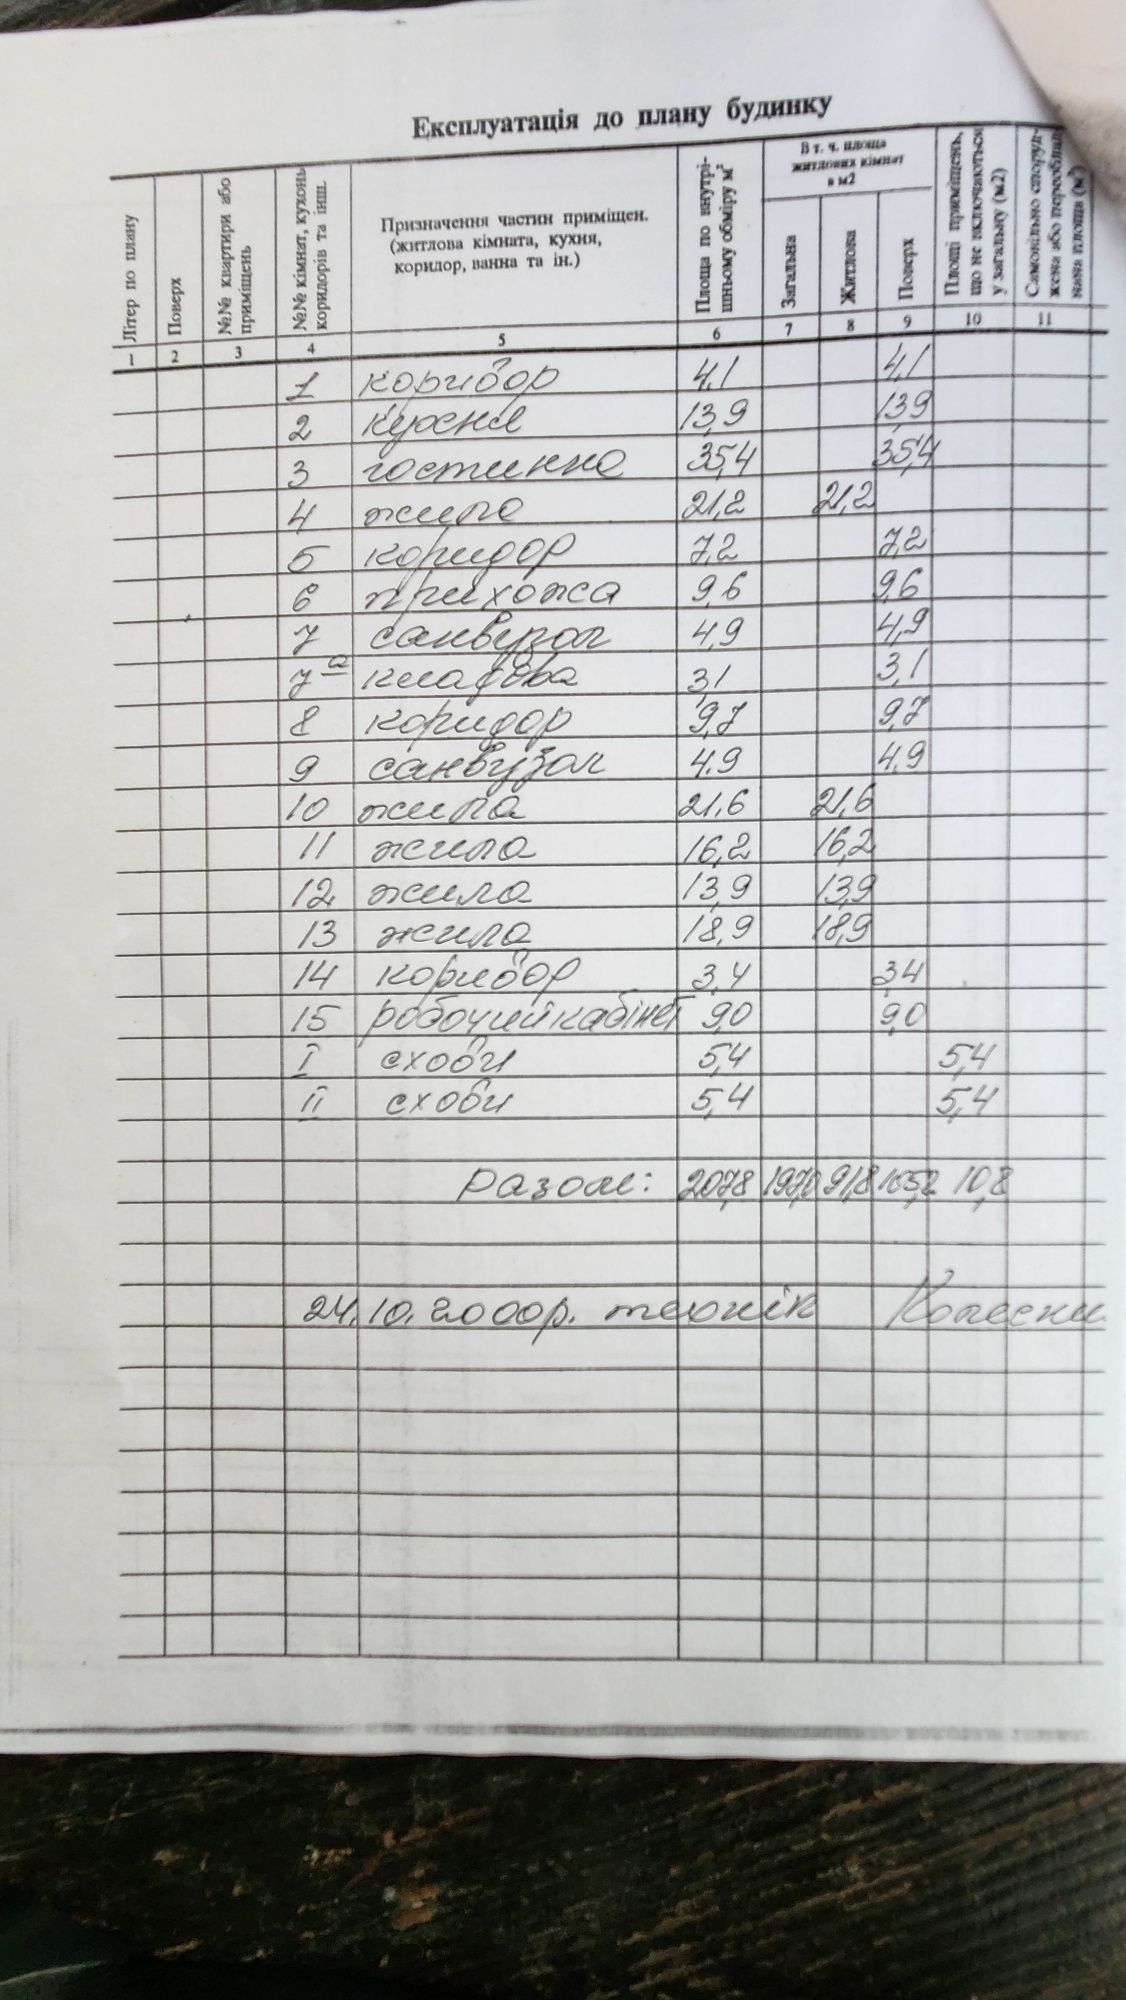 Експлуатація до плану будинку
Літер по плану
Поверх
№№ квартири або приміщень
№№ кімнат, кухонь коридорів та інш.
Призначення частин приміщен.
(житлова кімната, кухня,
коридор, ванна та ін.)
Площа по внутрі-
шньому обміру м²
В т. ч. площа
житлових кімнат
в м2
Загальна
Житлова
Поверх
Площі приміщень,
що не включаються
у загальну (м2)
Самовільно споруд-
жена або переоблад-
нана площа (м²)
1 2 3 4 5 6 7 8 9 10 11
1 коридор 4,1 4,1
2 кухня 13,9 13,9
3 гостинна 35,4 35,4
4 жила 21,2 21,2
5 коридор 7,2 7,2
6 прихожа 9,6 9,6
7 санвузол 4,9 4,9
7а кладова 3,1 3,1
8 коридор 9,7 9,7
9 санвузол 4.9 4.9
10 жила 21,6 21,6
11 жила 16,2 16,2
12 жила 13,9 13,9
13 жила 18,9 18,9
14 коридор 3,4 3,4
15 робочий кабінет 9,0 9,0
I сходи 5,4 5,4
II сходи 5,4 5,4
Разом: 207,8 197,0 91,8 105,2 10,8
24.10.2000р. технік